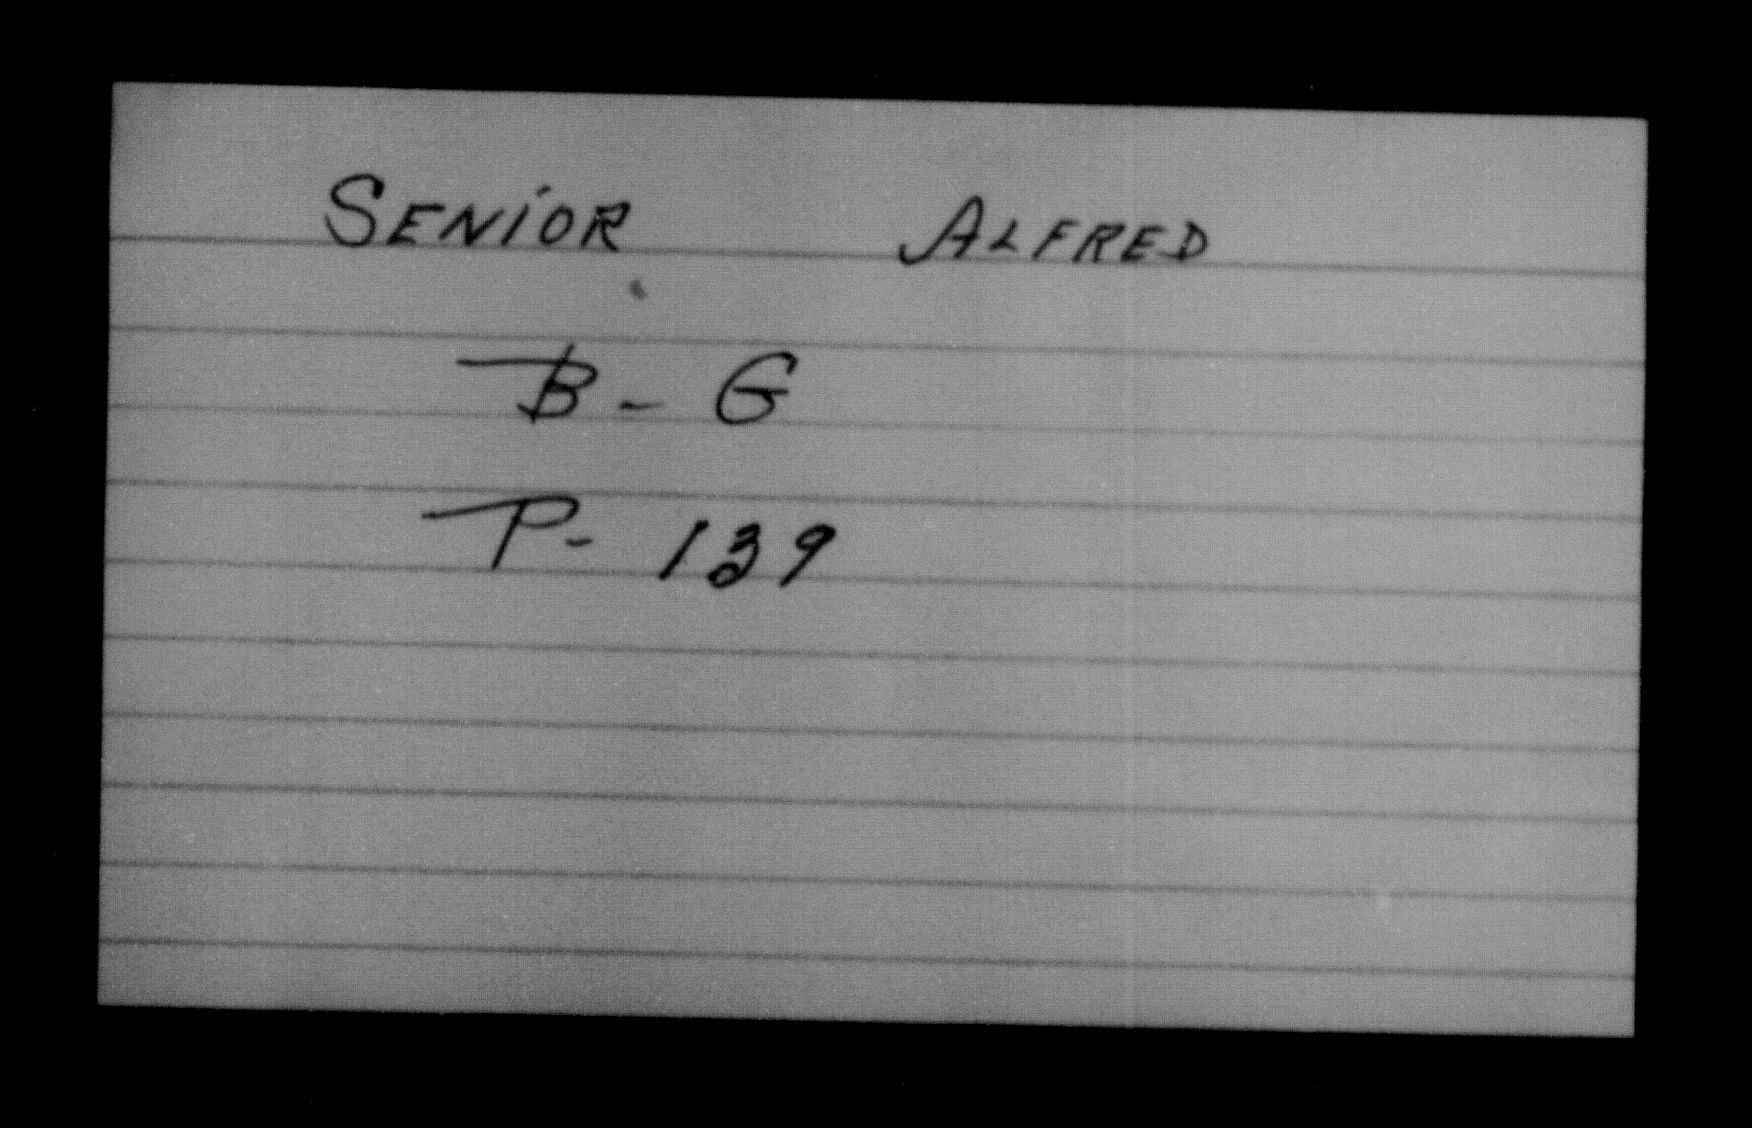 SENIOR ALFRED
B - G
P - 139